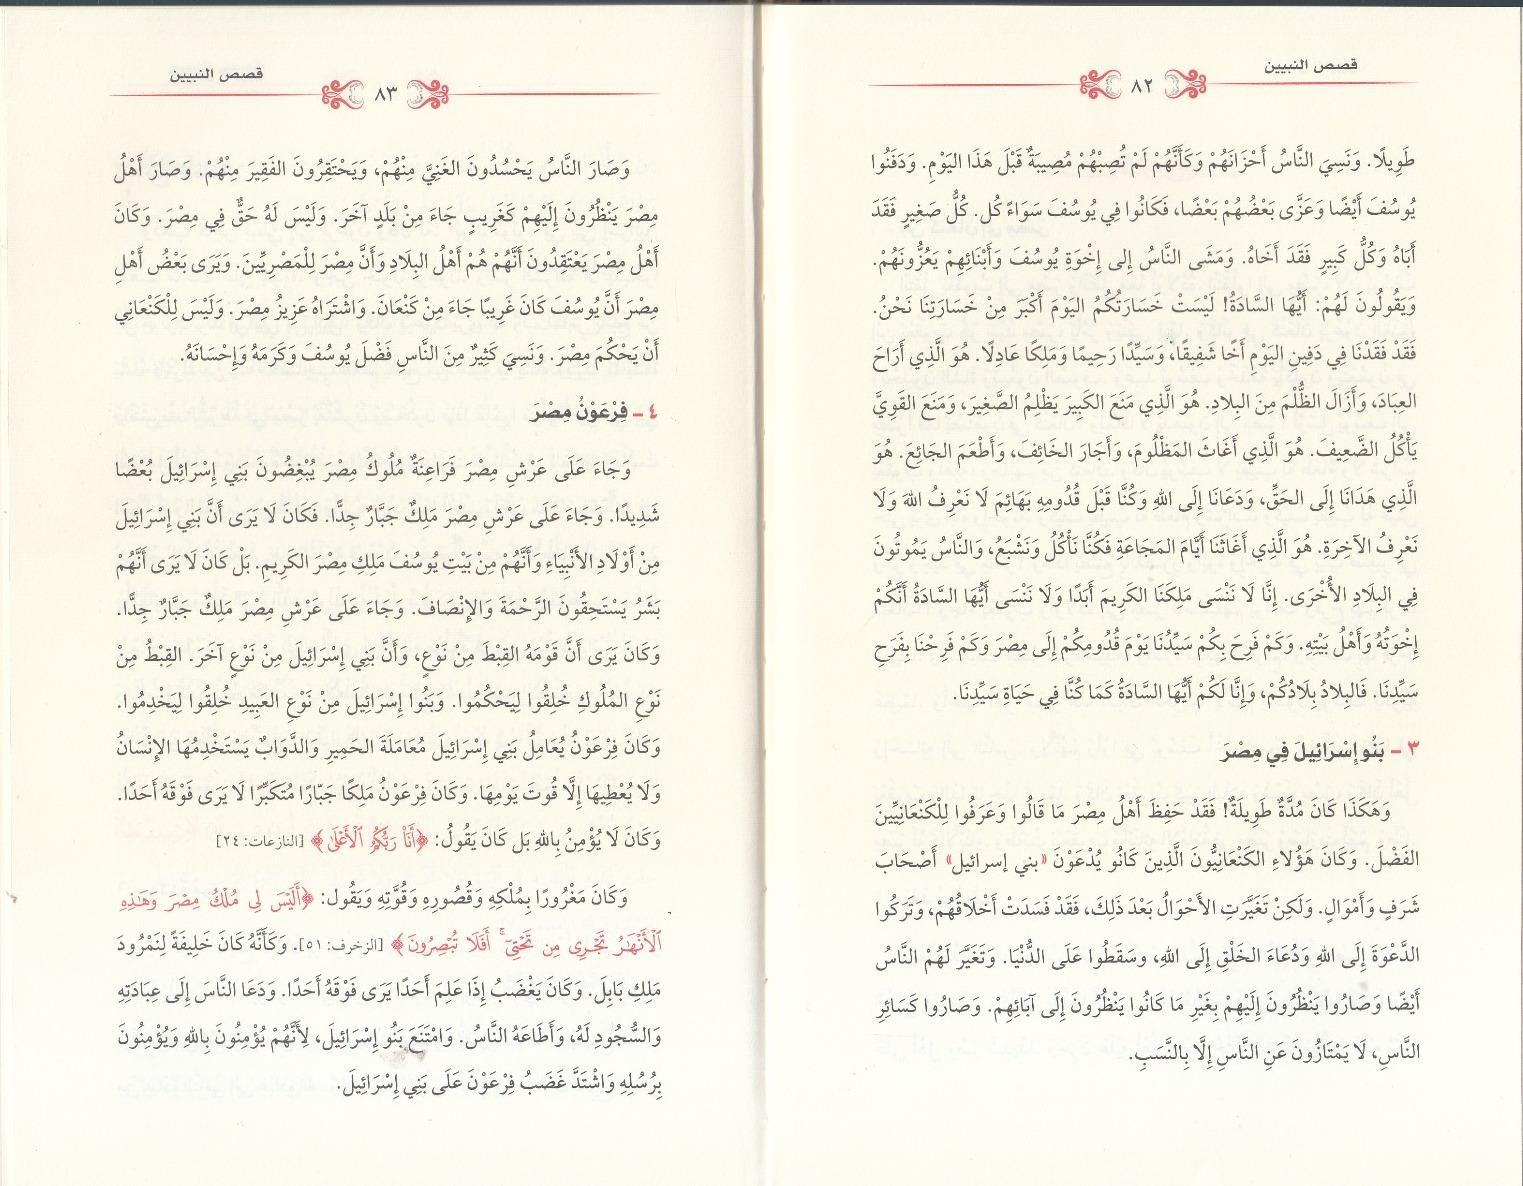 قصص النبيين
٨٢
طَوِيلًا. وَنَسِيَ النَّاسُ أَحْزَانَهُمْ وَكَأَنَّهُمْ لَمْ تُصِبْهُمْ مُصِيبَةٌ قَبْلَ هَذَا اليَوْمِ. وَدَفَنُوا
يُوسُفَ أَيْضًا وَعَزَّى بَعْضُهُمْ بَعْضًا، فَكَانُوا فِي يُوسُفَ سَوَاءً كُل. كُلُّ صَغِيرٍ فَقَدَ
أَبَاهُ وَكُلُّ كَبِيرٍ فَقَدَ أَخَاهُ. وَمَشَى النَّاسُ إلى إِخْوَةِ يُوسُفَ وَأَبْنَائِهِمْ يَعُزُّونَهُمْ.
وَيَقُولُونَ لَهُمْ: أَيُّهَا السَّادَةُ! لَيْسَتْ خَسَارَتُكُمُ اليَوْمَ أَكْبَرَ مِنْ خَسَارَتِنَا نَحْنُ.
فَقَدْ فَقَدْنَا فِي دَفِينِ اليَوْمِ أَخًا شَفِيقًا، وَسَيِّدًا رَحِيمًا وَمَلِكًا عَادِلًا. هُوَ الَّذِي أَرَاحَ
العِبَادَ، وَأَزَالَ الظُّلْمَ مِنَ البِلَادِ. هُوَ الَّذِي مَنَعَ الكَبِيرَ يَظْلِمُ الصَّغِيرَ، وَمَنَعَ القَوِيَّ
يَأْكُلُ الضَّعِيفَ. هُوَ الَّذِي أَغَاثَ المَظْلُومَ، وَأَجَارَ الخَائِفَ، وَأَطْعَمَ الجَائِعَ. هُوَ
الَّذِي هَدَانَا إِلَى الحَقِّ، وَدَعَانَا إِلَى اللهِ وَكُنَّا قَبْلَ قُدُومِهِ بَهَائِمَ لَا نَعْرِفُ اللهَ وَلَا
نَعْرِفُ الآخِرَةِ. هُوَ الَّذِي أَغَاثَنَا أَيَّامَ المَجَاعَةِ فَكُنَّا نَأْكُلُ وَنَشْبَعُ، وَالنَّاسُ يَمُوتُونَ
فِي البِلَادِ الأُخْرَى. إِنَّا لَا نَنْسَى مَلِكَنَا الكَرِيمَ أَبَدًا وَلَا نَنْسَى أَيُّهَا السَّادَةُ أَنَّكُمْ
إِخْوَتُهُ وَأَهْلُ بَيْتِهِ. وَكَمْ فَرِحَ بِكُمْ سَيِّدُنَا يَوْمَ قُدُومِكُمْ إِلَى مِصْرَ وَكَمْ فَرِحْنَا بِفَرَحِ
سَيِّدِنَا. فَالبِلادُ بِلَادُكُمْ، وَإِنَّا لَكُمْ أَيُّهَا السَّادَةُ كَمَا كُنَّا فِي حَيَاةِ سَيِّدِنَا.
٣ - بَنُو إِسْرَائِيلَ فِي مِصْرَ
وَهَكَذَا كَانَ مُدَّةً طَوِيلَةً! فَقَدْ حَفِظَ أَهْلُ مِصْرَ مَا قَالُوا وَعَرَفُوا لِلْكَنْعَانِيِّينَ
الفَضْلَ. وَكَانَ هَؤُلَاءِ الكَنْعَانِيُّونَ الَّذِينَ كَانُو يُدْعَوْنَ «بني إسرائيل» أَصْحَابَ
شَرَفٍ وَأَمْوَالٍ. وَلَكِنْ تَغَيَّرَتِ الأَحْوَالُ بَعْدَ ذَلِكَ، فَقَدْ فَسَدَتْ أَخْلَاقُهُمْ، وَتَرَكُوا
الدَّعْوَةَ إِلَى اللهِ وَدُعَاءَ الخَلْقِ إِلَى اللهِ، وسَقَطُوا عَلَى الدُّنْيَا. وَتَغَيَّرَ لَهُمْ النَّاسُ
أَيْضًا وَصَارُوا يَنْظُرُونَ إِلَيْهِمْ بِغَيْرِ مَا كَانُوا يَنْظُرُونَ إِلَى آبَائِهِمْ. وَصَارُوا كَسَائِرِ
النَّاسِ، لَا يَمْتَازُونَ عَنِ النَّاسِ إِلَّا بِالنَّسَبِ.
قصص النبيين
٨٣
وَصَارَ النَّاسُ يَحْسُدُونَ الغَنِيَّ مِنْهُمْ، وَيَحْتَقِرُونَ الفَقِيرَ مِنْهُمْ. وَصَارَ أَهْلُ
مِصْرَ يَنْظُرُونَ إِلَيْهِمْ كَغَرِيبٍ جَاءَ مِنْ بَلَدٍ آخَرَ. وَلَيْسَ لَهُ حَقٌّ فِي مِصْرَ. وَكَانَ
أَهْلُ مِصْرَ يَعْتَقِدُونَ أَنَّهُمْ هُمْ أَهْلُ البِلَادِ وَأَنَّ مِصْرَ لِلْمَصْرِيِّينَ. وَيَرَى بَعْضُ أَهْلِ
مِصْرَ أَنَّ يُوسُفَ كَانَ غَرِيبًا جَاءَ مِنْ كَنْعَانَ. وَاشْتَرَاهُ عَزِيزُ مِصْرَ. وَلَيْسَ لِلْكَنْعَانِي
أَنْ يَحْكُمَ مِصْرَ. وَنَسِيَ كَثِيرٌ مِنَ النَّاسِ فَضْلَ يُوسُفَ وَكَرَمَهُ وَإِحْسَانَهُ.
٤ - فِرْعَوْنُ مِصْرَ
وَجَاءَ عَلَى عَرْشِ مِصْرَ فَرَاعِنَةٌ مُلُوكُ مِصْرَ يُبْغِضُونَ بَنِي إِسْرَائِيلَ بُغْضًا
شَدِيدًا. وَجَاءَ عَلَى عَرْشِ مِصْرَ مَلِكٌ جَبَّارٌ جِدًّا. فَكَانَ لَا يَرَى أَنَّ بَنِي إِسْرَائِيلَ
مِنْ أَوْلَادِ الأَنْبِيَاءِ وَأَنَّهُمْ مِنْ بَيْتِ يُوسُفَ مَلِكِ مِصْرَ الكَرِيمِ. بَلْ كَانَ لَا يَرَى أَنَّهُمْ
بَشَرٌ يَسْتَحِقُونَ الرَّحْمَةَ وَالإِنْصَافَ. وَجَاءَ عَلَى عَرْشِ مِصْرَ مَلِكٌ جَبَّارٌ جِدًّا.
وَكَانَ يَرَى أَنَّ قَوْمَهُ القِبْطَ مِنْ نَوْعٍ، وَأَنَّ بَنِي إِسْرَائِيلَ مِنْ نَوْعٍ آخَرَ. القِبْطُ مِنْ
نَوْعِ المُلُوكِ خُلِقُوا لِيَحْكُمُوا. وَبَنُوا إِسْرَائِيلَ مِنْ نَوْعِ العَبِيدِ خُلِقُوا لِيَخْدِمُوا.
وَكَانَ فِرْعَوْنُ يُعَامِلُ بَنِي إِسْرَائِيلَ مُعَامَلَةَ الحَمِيرِ وَالدَّوَابِّ يَسْتَخْدِمُهَا الإِنْسَانُ
وَلَا يُعْطِيهَا إِلَّا قُوتَ يَوْمِهَا. وَكَانَ فِرْعَوْنُ مَلِكًا جَبّارًا مُتَكَبِّرًا لَا يَرَى فَوْقَهُ أَحَدًا.
وَكَانَ لَا يُؤْمِنُ بِاللهِ بَل كَانَ يَقُولُ: ﴿أَنَا۠ رَبُّكُمُ ٱلْأَعْلَىٰ﴾ [النازعات: ٢٤]
وَكَانَ مَغْرُورًا بِمُلْكِهِ وَقُصُورِهِ وَقُوَّتِهِ وَيَقُول: ﴿أَلَيْسَ لِى مُلْكُ مِصْرَ وَهَٰذِهِ
ٱلْأَنْهَٰرُ تَجْرِى مِن تَحْتِىٓ ۚ أَفَلَا تُبْصِرُونَ﴾ [الزخرف: ٥١]. وَكَأَنَّهُ كَانَ خَلِيفَةً لِنَمْرُودَ
مَلِكِ بَابِلَ. وَكَانَ يَغْضَبُ إِذَا عَلِمَ أَحَدًا يَرَى فَوْقَهُ أَحَدًا. وَدَعَا النَّاسَ إِلَى عِبَادَتِهِ
وَالسُّجُودِ لَهُ، وَأَطَاعَهُ النَّاسُ. وَامْتَنَعَ بَنُو إِسْرَائِيلَ، لِأَنَّهُمْ يُؤْمِنُونَ بِاللهِ وَيُؤْمِنُونَ
بِرُسُلِهِ وَاشْتَدَّ غَضَبُ فِرْعَوْنَ عَلَى بَنِي إِسْرَائِيلَ.